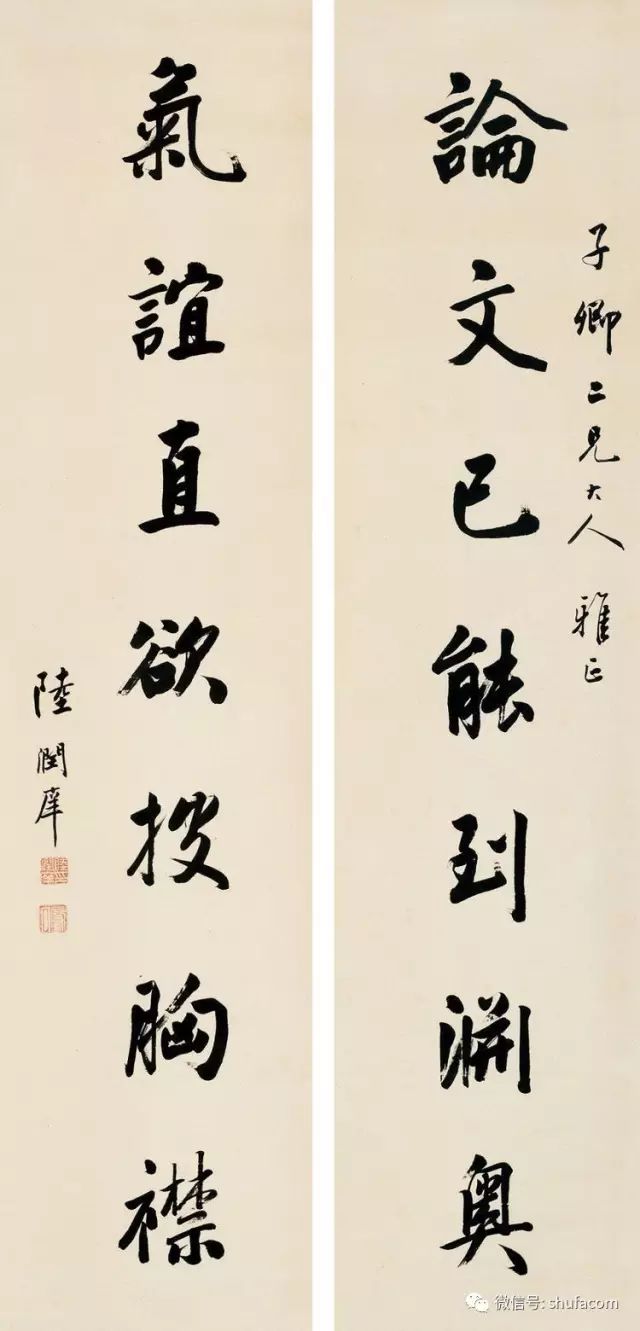 子卿二兄大人 雅正
論文已能到淵奥
氣誼直欲披胸襟
陸潤庠
微信号: shufacom